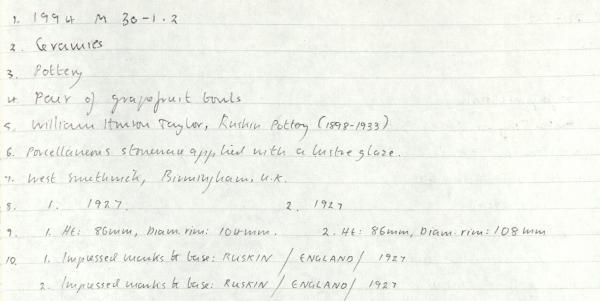 1. 1994 M 30-1.2
2. Ceramics
3. Pottery
4. Pair of grapefruit bowls
5. William Howson Taylor, Ruskin Pottery (1898-1933)
6. Porcellaneous stoneware applied with a lustre glaze.
7. West Smethwick, Birmingham, U.K.
8. 1. 1927 2. 1927
9. 1. Ht: 86mm, Diam. rim: 108mm. 2. Ht: 86mm, Diam. rim: 108mm
10. 1. Impressed marks to base: RUSKIN / ENGLAND / 1927
2. Impressed marks to base: RUSKIN / ENGLAND / 1927